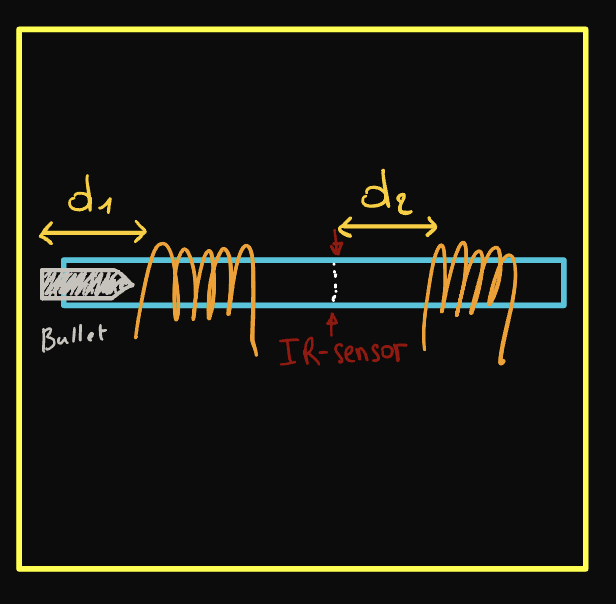 d1
d2
Bullet
IR-sensor